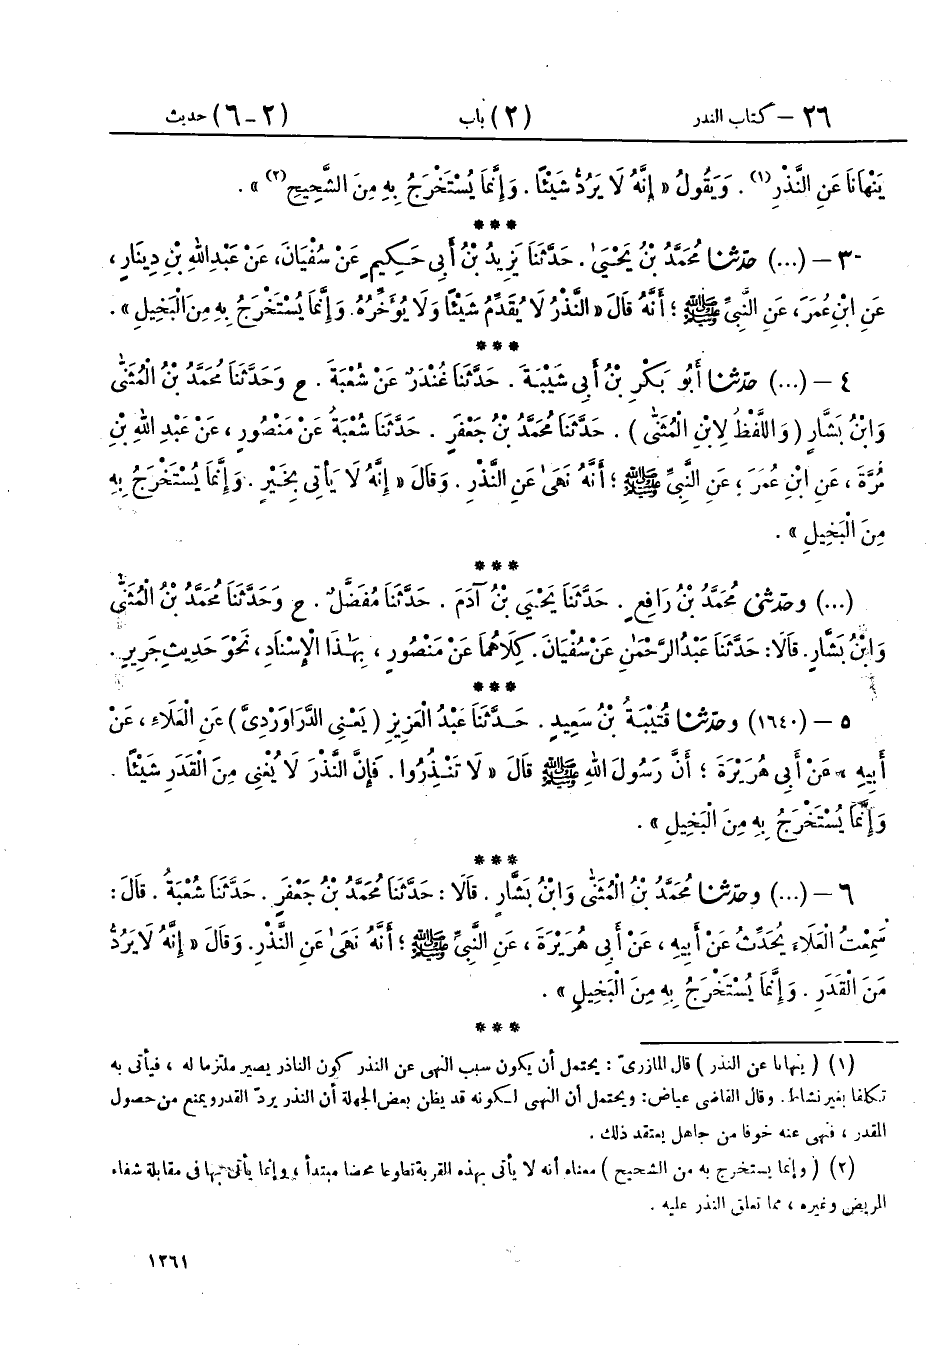 ٢٦ – كتاب النذر (٢) باب (٢-٦) حديث
يَنْهَانَا عَنِ النَّذْرِ(١) . وَيَقُولُ « إِنَّهُ لَا يَرُدُّ شَيْئًا . وَإِنَّمَا يُسْتَخْرَجُ بِهِ مِنَ الشَّحِيحِ(٢) » .
***
٣ – (...) حدّثنا مُحَمَّدُ بْنُ يَحْيَىٰ . حَدَّثَنَا يَزِيدُ بْنُ أَبِي حَكِيمٍ عَنْ سُفْيَانَ، عَنْ عَبْدِ اللهِ بْنِ دِينَارٍ ،
عَنِ ابْنِ عُمَرَ، عَنِ النَّبِيِّ ﷺ ؛ أَنَّهُ قَالَ « النَّذْرُ لَا يُقَدِّمُ شَيْئًا وَلَا يُؤَخِّرُهُ. وَإِنَّمَا يُسْتَخْرَجُ بِهِ مِنَ الْبَخِيلِ » .
***
٤ – (...) حدّثنا أَبُو بَكْرِ بْنُ أَبِي شَيْبَةَ . حَدَّثَنَا غُنْدَرٌ عَنْ شُعْبَةَ . ح وَحَدَّثَنَا مُحَمَّدُ بْنُ الْمُثَنَّىٰ
وَابْنُ بَشَّارٍ ( وَاللَّفْظُ لِابْنِ الْمُثَنَّىٰ ) . حَدَّثَنَا مُحَمَّدُ بْنُ جَعْفَرٍ . حَدَّثَنَا شُعْبَةُ عَنْ مَنْصُورٍ ، عَنْ عَبْدِ اللهِ بْنِ
مُرَّةَ ، عَنِ ابْنِ عُمَرَ ، عَنِ النَّبِيِّ ﷺ ؛ أَنَّهُ نَهَىٰ عَنِ النَّذْرِ . وَقَالَ « إِنَّهُ لَا يَأْتِي بِخَيْرٍ . وَإِنَّمَا يُسْتَخْرَجُ بِهِ
مِنَ الْبَخِيلِ » .
***
(...) وحدّثني مُحَمَّدُ بْنُ رَافِعٍ . حَدَّثَنَا يَحْيَىٰ بْنُ آدَمَ . حَدَّثَنَا مُفَضَّلٌ . ح وَحَدَّثَنَا مُحَمَّدُ بْنُ الْمُثَنَّىٰ
وَابْنُ بَشَّارٍ. قَالَا: حَدَّثَنَا عَبْدُ الرَّحْمَٰنِ عَنْ سُفْيَانَ. كِلَاهُمَا عَنْ مَنْصُورٍ ، بِهَٰذَا الْإِسْنَادِ، نَحْوَ حَدِيثِ جَرِيرٍ .
***
٥ – (١٦٤٠) وحدّثنا قُتَيْبَةُ بْنُ سَعِيدٍ . حَدَّثَنَا عَبْدُ الْعَزِيزِ ( يَعْنِي الدَّرَاوَرْدِيَّ ) عَنِ الْعَلَاءِ ، عَنْ
أَبِيهِ ، عَنْ أَبِي هُرَيْرَةَ ؛ أَنَّ رَسُولَ اللهِ ﷺ قَالَ « لَا تَنْذُرُوا . فَإِنَّ النَّذْرَ لَا يُغْنِي مِنَ الْقَدَرِ شَيْئًا .
وَإِنَّمَا يُسْتَخْرَجُ بِهِ مِنَ الْبَخِيلِ » .
***
٦ – (...) وحدّثنا مُحَمَّدُ بْنُ الْمُثَنَّىٰ وَابْنُ بَشَّارٍ . قَالَا : حَدَّثَنَا مُحَمَّدُ بْنُ جَعْفَرٍ . حَدَّثَنَا شُعْبَةُ . قَالَ :
سَمِعْتُ الْعَلَاءَ يُحَدِّثُ عَنْ أَبِيهِ ، عَنْ أَبِي هُرَيْرَةَ ، عَنِ النَّبِيِّ ﷺ ؛ أَنَّهُ نَهَىٰ عَنِ النَّذْرِ . وَقَالَ « إِنَّهُ لَا يَرُدُّ
مِنَ الْقَدَرِ . وَإِنَّمَا يُسْتَخْرَجُ بِهِ مِنَ الْبَخِيلِ » .
***
(١) ( ينهانا عن النذر ) قال المازريّ : يحتمل أن يكون سبب النهى عن النذر كون الناذر يصير ملتزما له ، فيأتى به
تكلفا بغير نشاط. وقال القاضى عياض: ويحتمل أن النهى لكونه قد يظن بعض الجهلة أن النذر يردّ القدر ويمنع من حصول
المقدر ، فنهى عنه خوفا من جاهل يعتقد ذلك .
(٢) ( وإنما يستخرج به من الشحيح ) معناه أنه لا يأتى بهذه القربة تطوعا محضا مبتدأ ، وإنما يأتى بها فى مقابلة شفاء
المريض وغيره ، مما تعلق النذر عليه .
١٢٦١